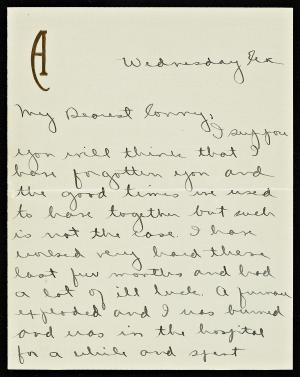 A
Wednesday Eve
My Dearest Conny,
I suppose
you will think that I
have forgotten you and
the good times we used
to have together but such
is not the case. I have
worked very hard these
last few months and had
a lot of ill luck. A furnace
exploded and I was burned
and was in the hospital
for a while and spent